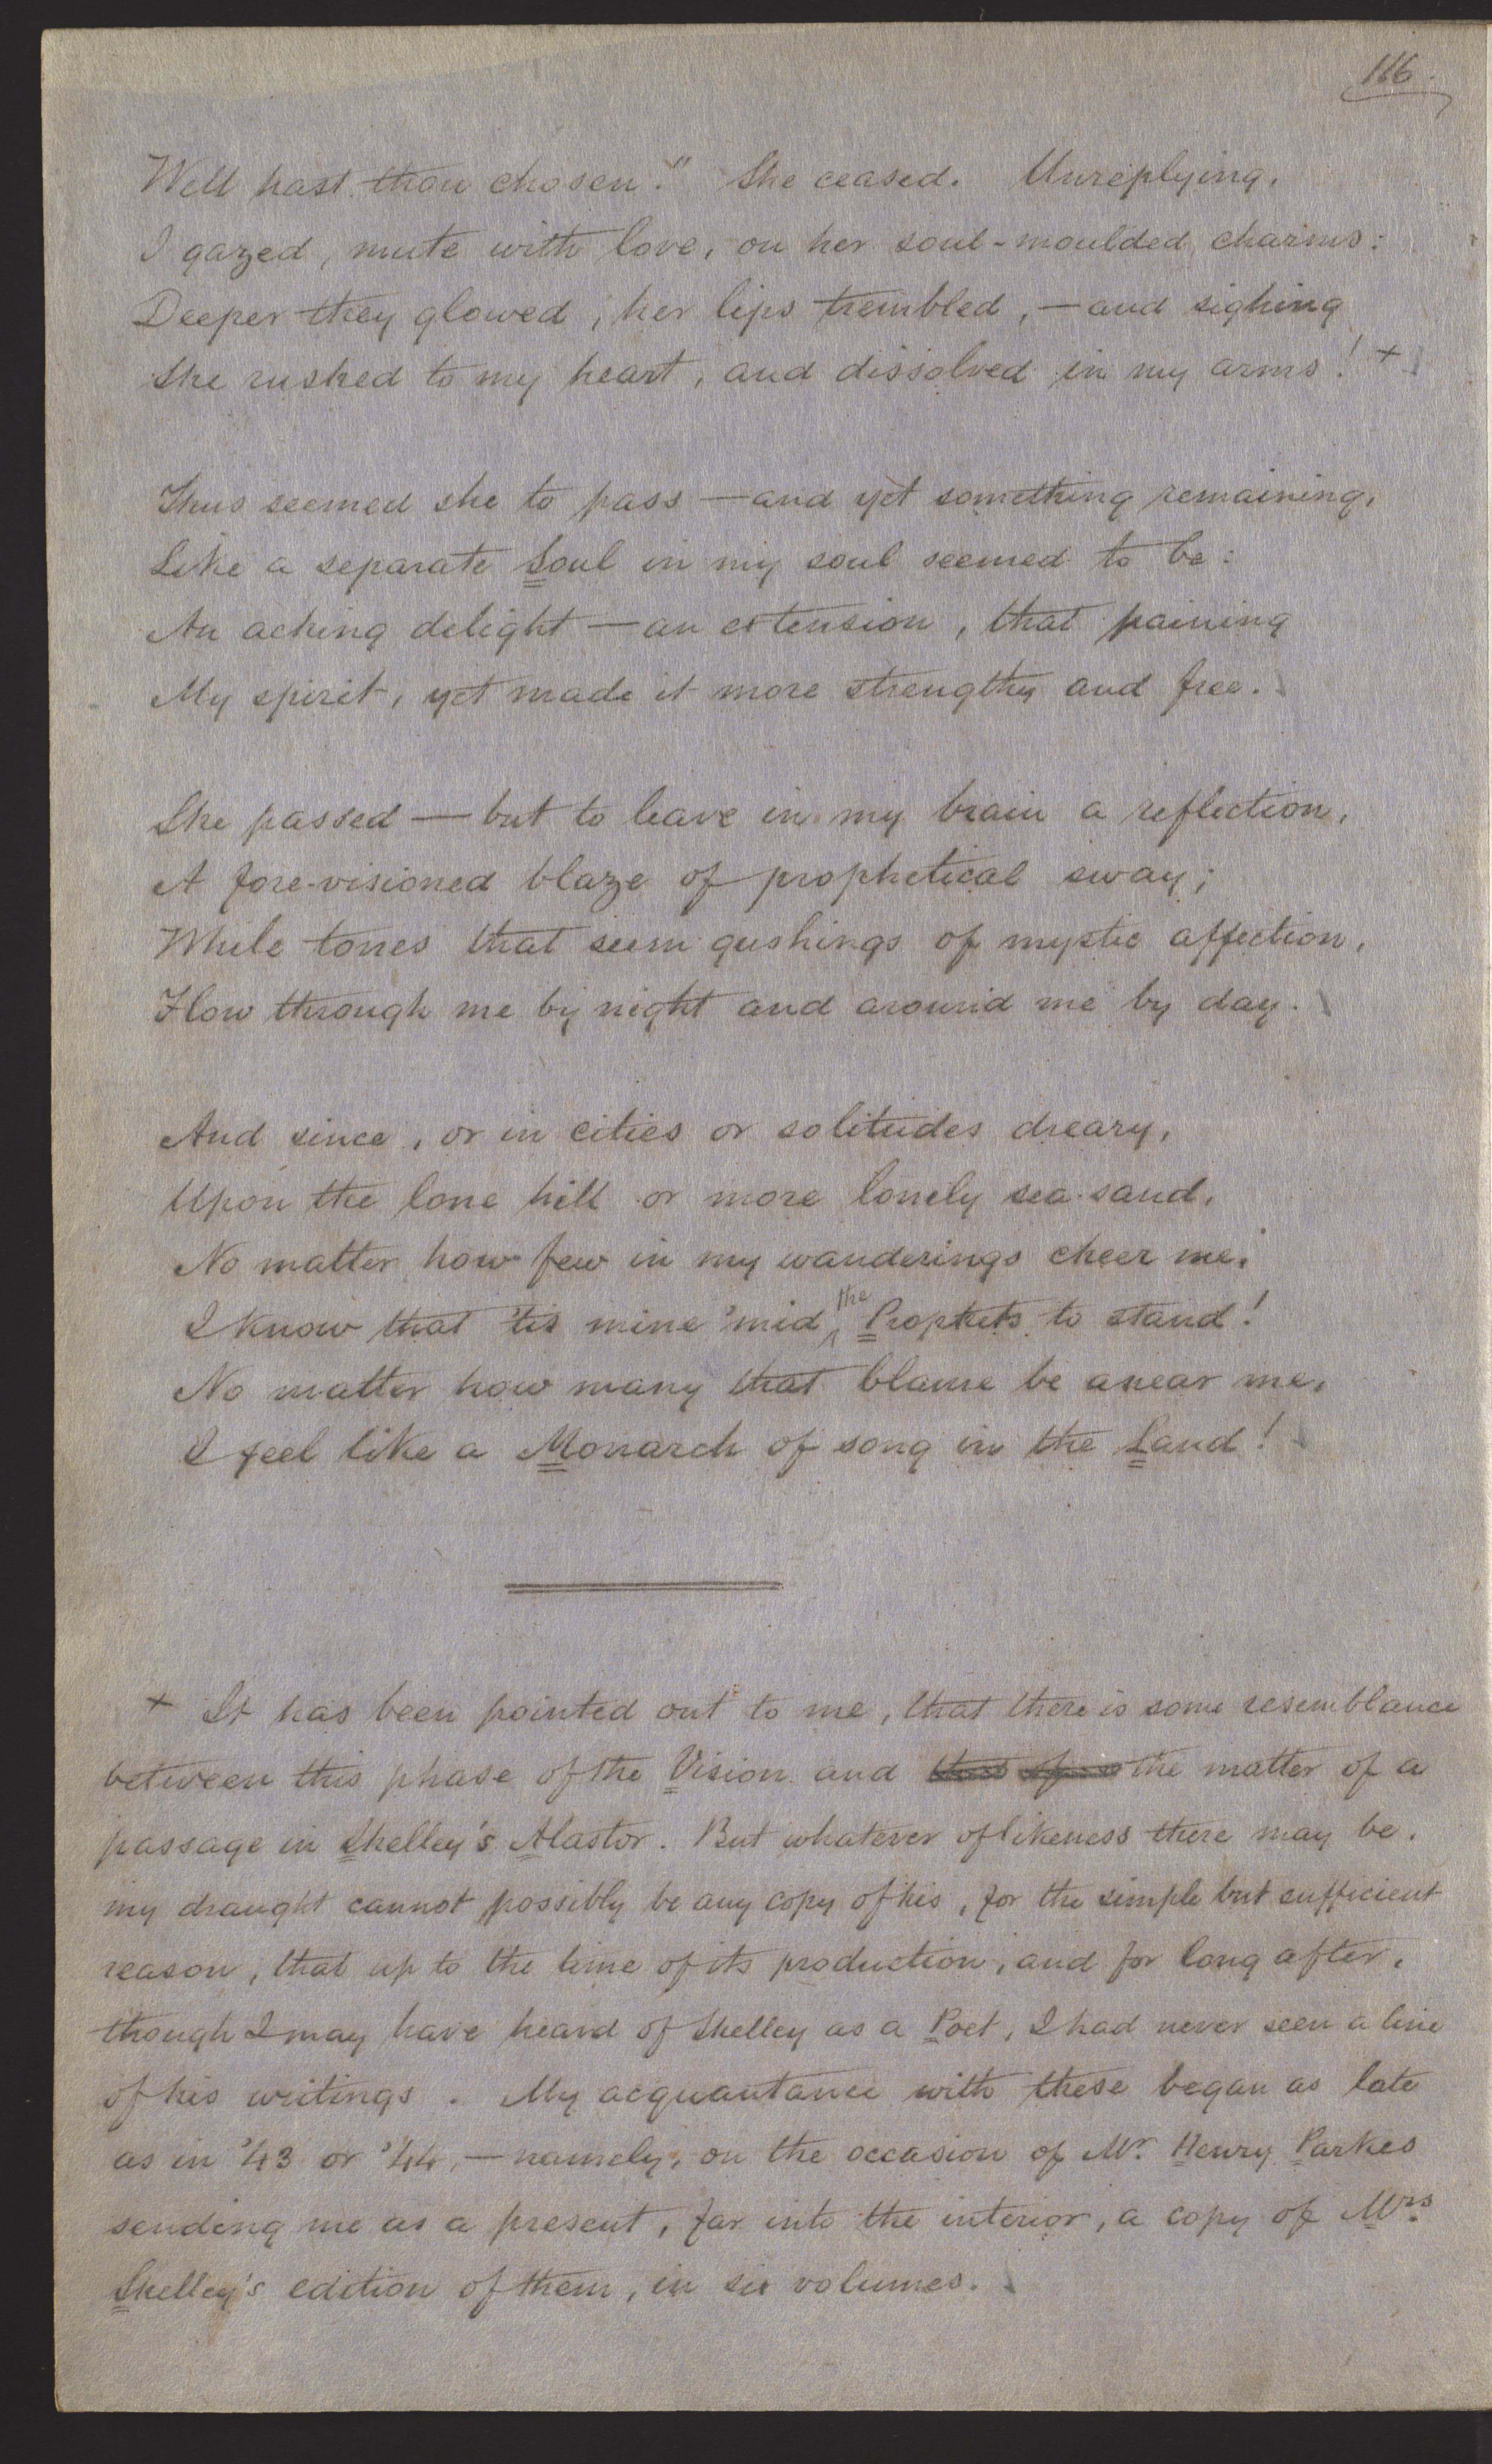 116.
Well hast thou chosen." She ceased. Unreplying,
I gazed, mute with love, on her soul-moulded charms:
Deeper they glowed; her lips trembled, — and sighing
She rushed to my heart, and dissolved in my arms! +
Thus seemed she to pass — and yet something remaining,
Like a separate Soul in my soul seemed to be:
An aching delight — an extension, that paining
My spirit, yet made it more strengthy and free.
She passed — but to leave in my brain a reflection,
A fore-visioned blaze of prophetical sway;
While tones that seem gushings of mystic affection,
Flow through me by night and around me by day.
And since, or in cities or solitudes dreary,
Upon the lone hill or more lonely sea-sand,
No matter how few in my wanderings cheer me,
I know that 'tis mine 'mid the Prophets to stand!
No matter how many that blame be anear me,
I feel like a Monarch of song in the Land!
+ It has been pointed out to me, that there is some resemblance
between this phase of the Vision and the matter of a
passage in Shelley's Alastor. But whatever of likeness there may be,
my draught cannot possibly be any copy of his, for the simple but sufficient
reason, that up to the time of its production, and for long after,
though I may have heard of Shelley as a Poet, I had never seen a line
of his writings. My acquantance with these began as late
as in '43 or '44, — namely, on the occasion of Mr. Henry Parkes
sending me as a present, far into the interior, a copy of Mrs.
Shelley's edition of them, in six volumes.